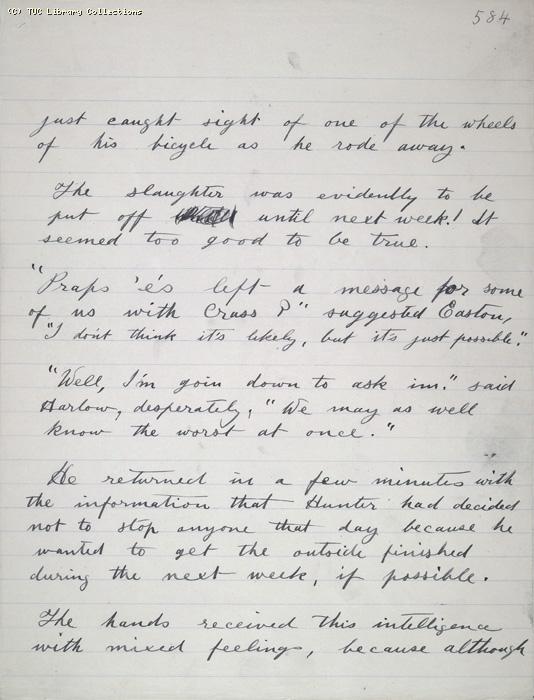 (C) TUC Library Collections
584
just caught sight of one of the wheels
of his bicycle as he rode away.
The slaughter was evidently to be
put off until next week! It
seemed too good to be true.
"Praps 'e's left a message for some
of us with Crass?" suggested Easton,
"I don't think it's likely, but it's just possible".
"Well, I'm goin down to ask im." said
Harlow, desperately, "We may as well
know the worst at once."
He returned in a few minutes with
the information that Hunter had decided
not to stop anyone that day because he
wanted to get the outside finished
during the next week, if possible.
The hands received this intelligence
with mixed feelings, because although